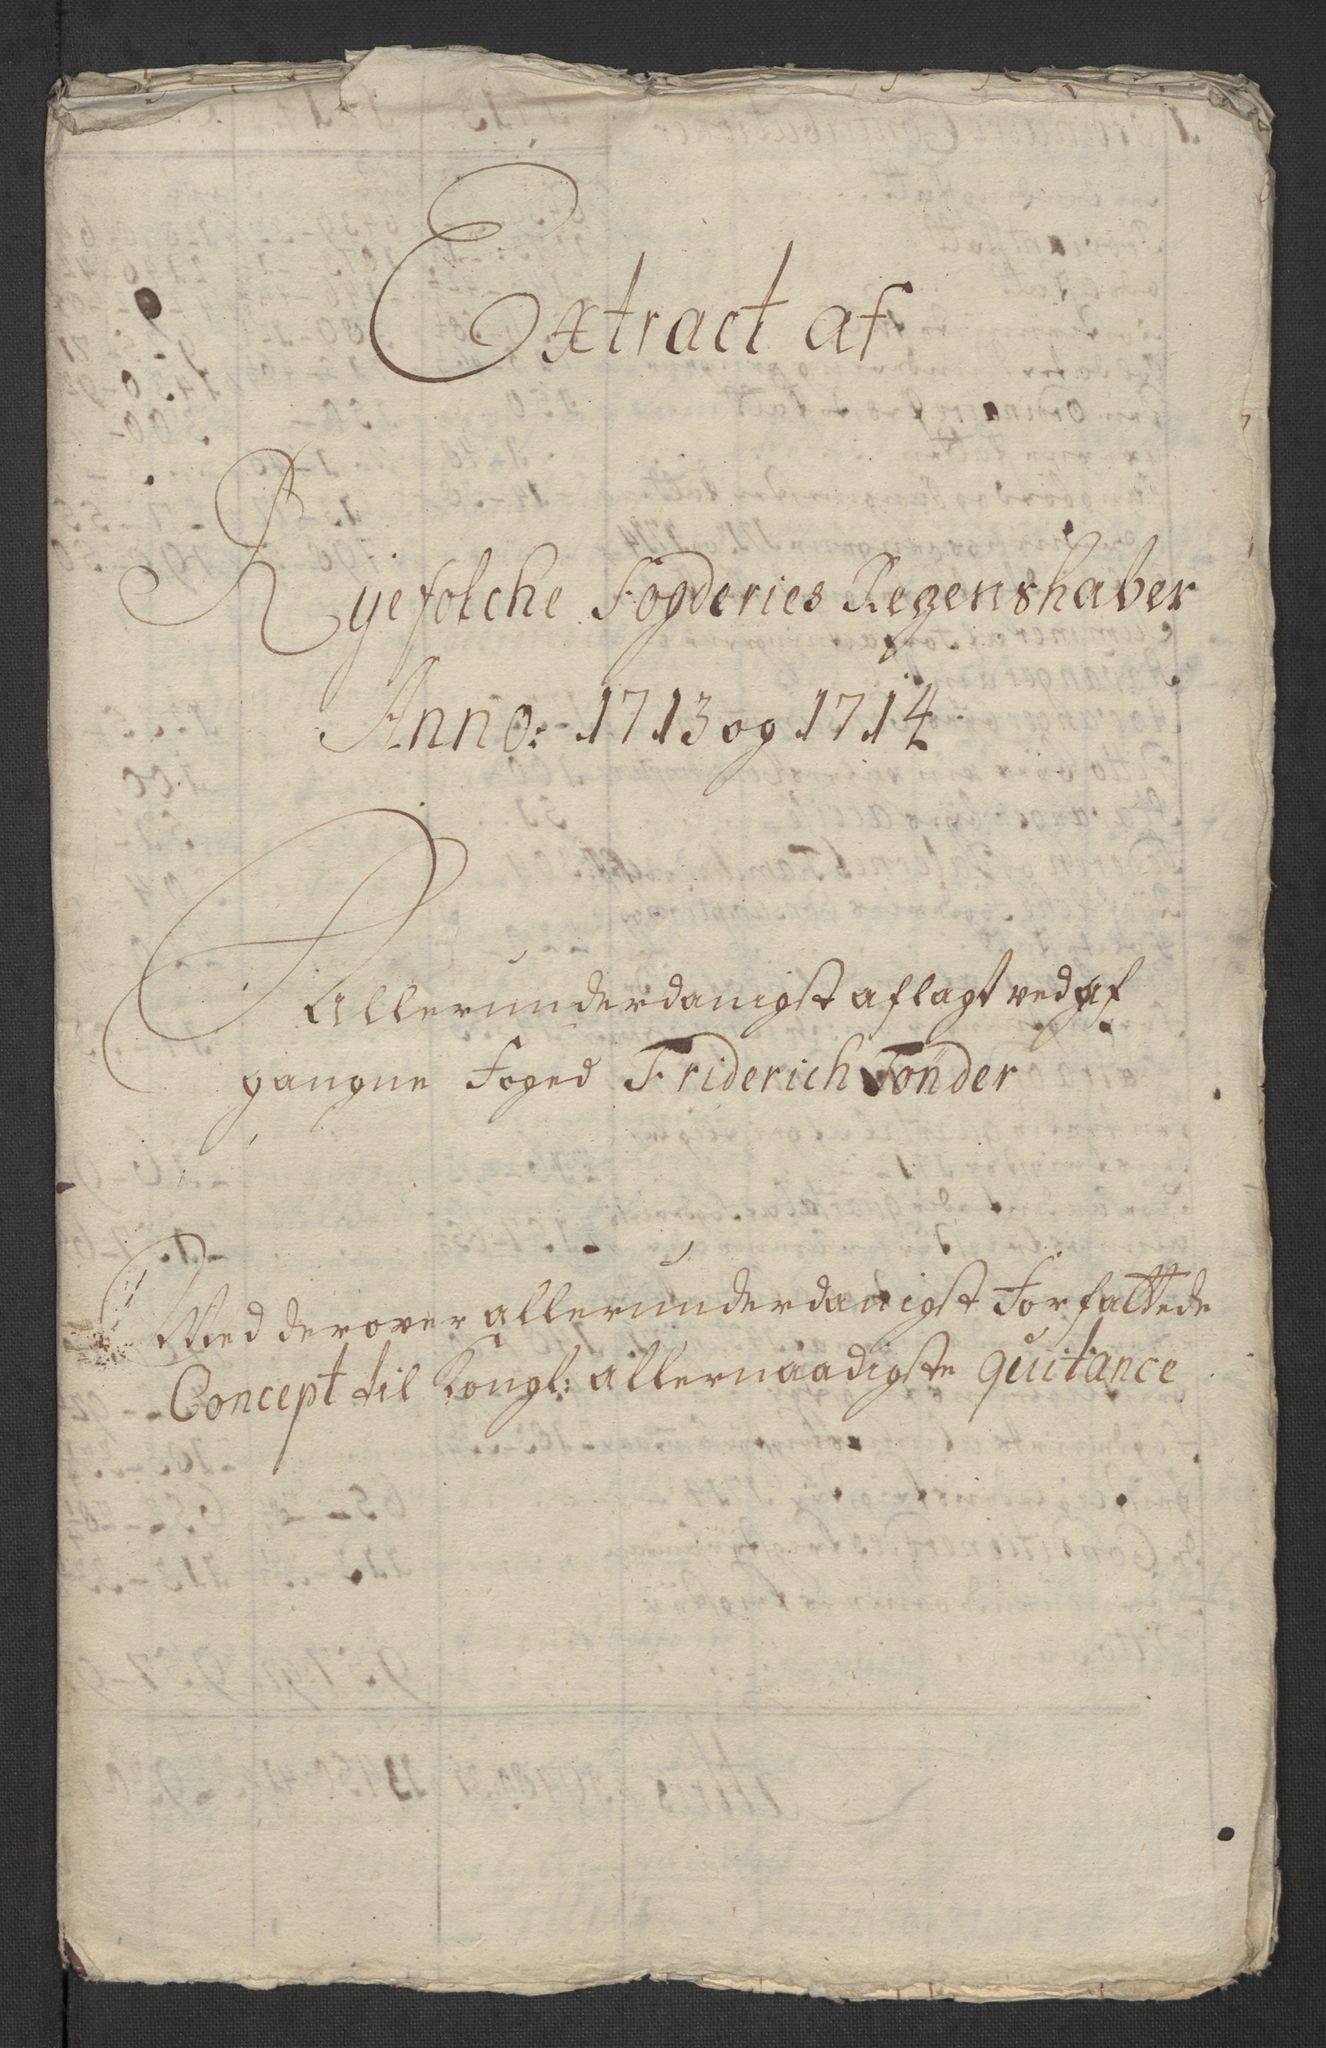 Extract af
Ryefolche Fogderies Regenskaber
Anno: 1713 og 1714
Allerunderdanigst aflagt ved af
gangne Foged Friderich Tønder
Med derover allerunderdanigst Forfattede
Concept til Kongl: allernaadigste quitance